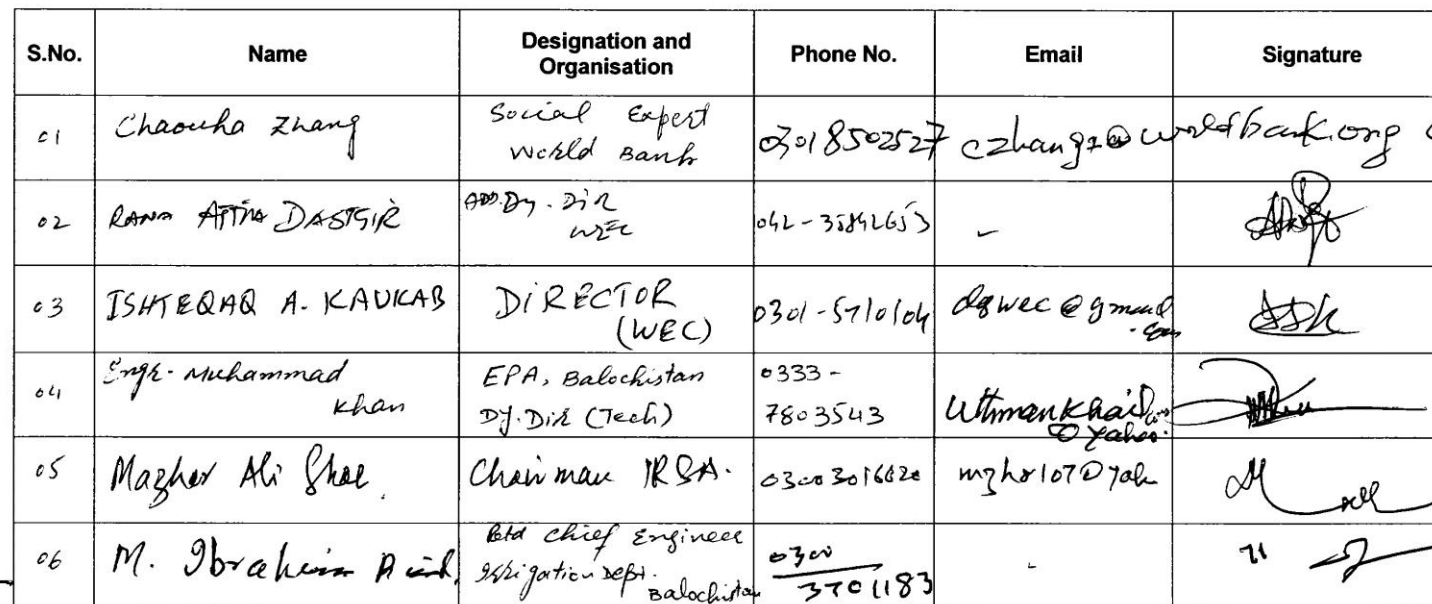 S.No. Name Designation and Organisation Phone No. Email Signature
01 Chaouha Zhang Social Expert World Bank 03018502527 czhang2@worldbank.org
02 RANA ATTIA DASTGIR ADD. Dy. Dir WEC 042-35842653 -
03 ISHTEQAQ A. KAUKAB DIRECTOR (WEC) 0301-5710104 dgwec@gmail.com
04 Engr. Muhammad Khan EPA, Balochistan Dy. Dir (Tech) 0333-7803543 @yahoo.
05 Mazhar Ali Shah Chairman IRSA. 03003016620
06 M. Ibrahim Rtd Chief Engineer Irrigation Dept. Balochistan 0300 3701183 -